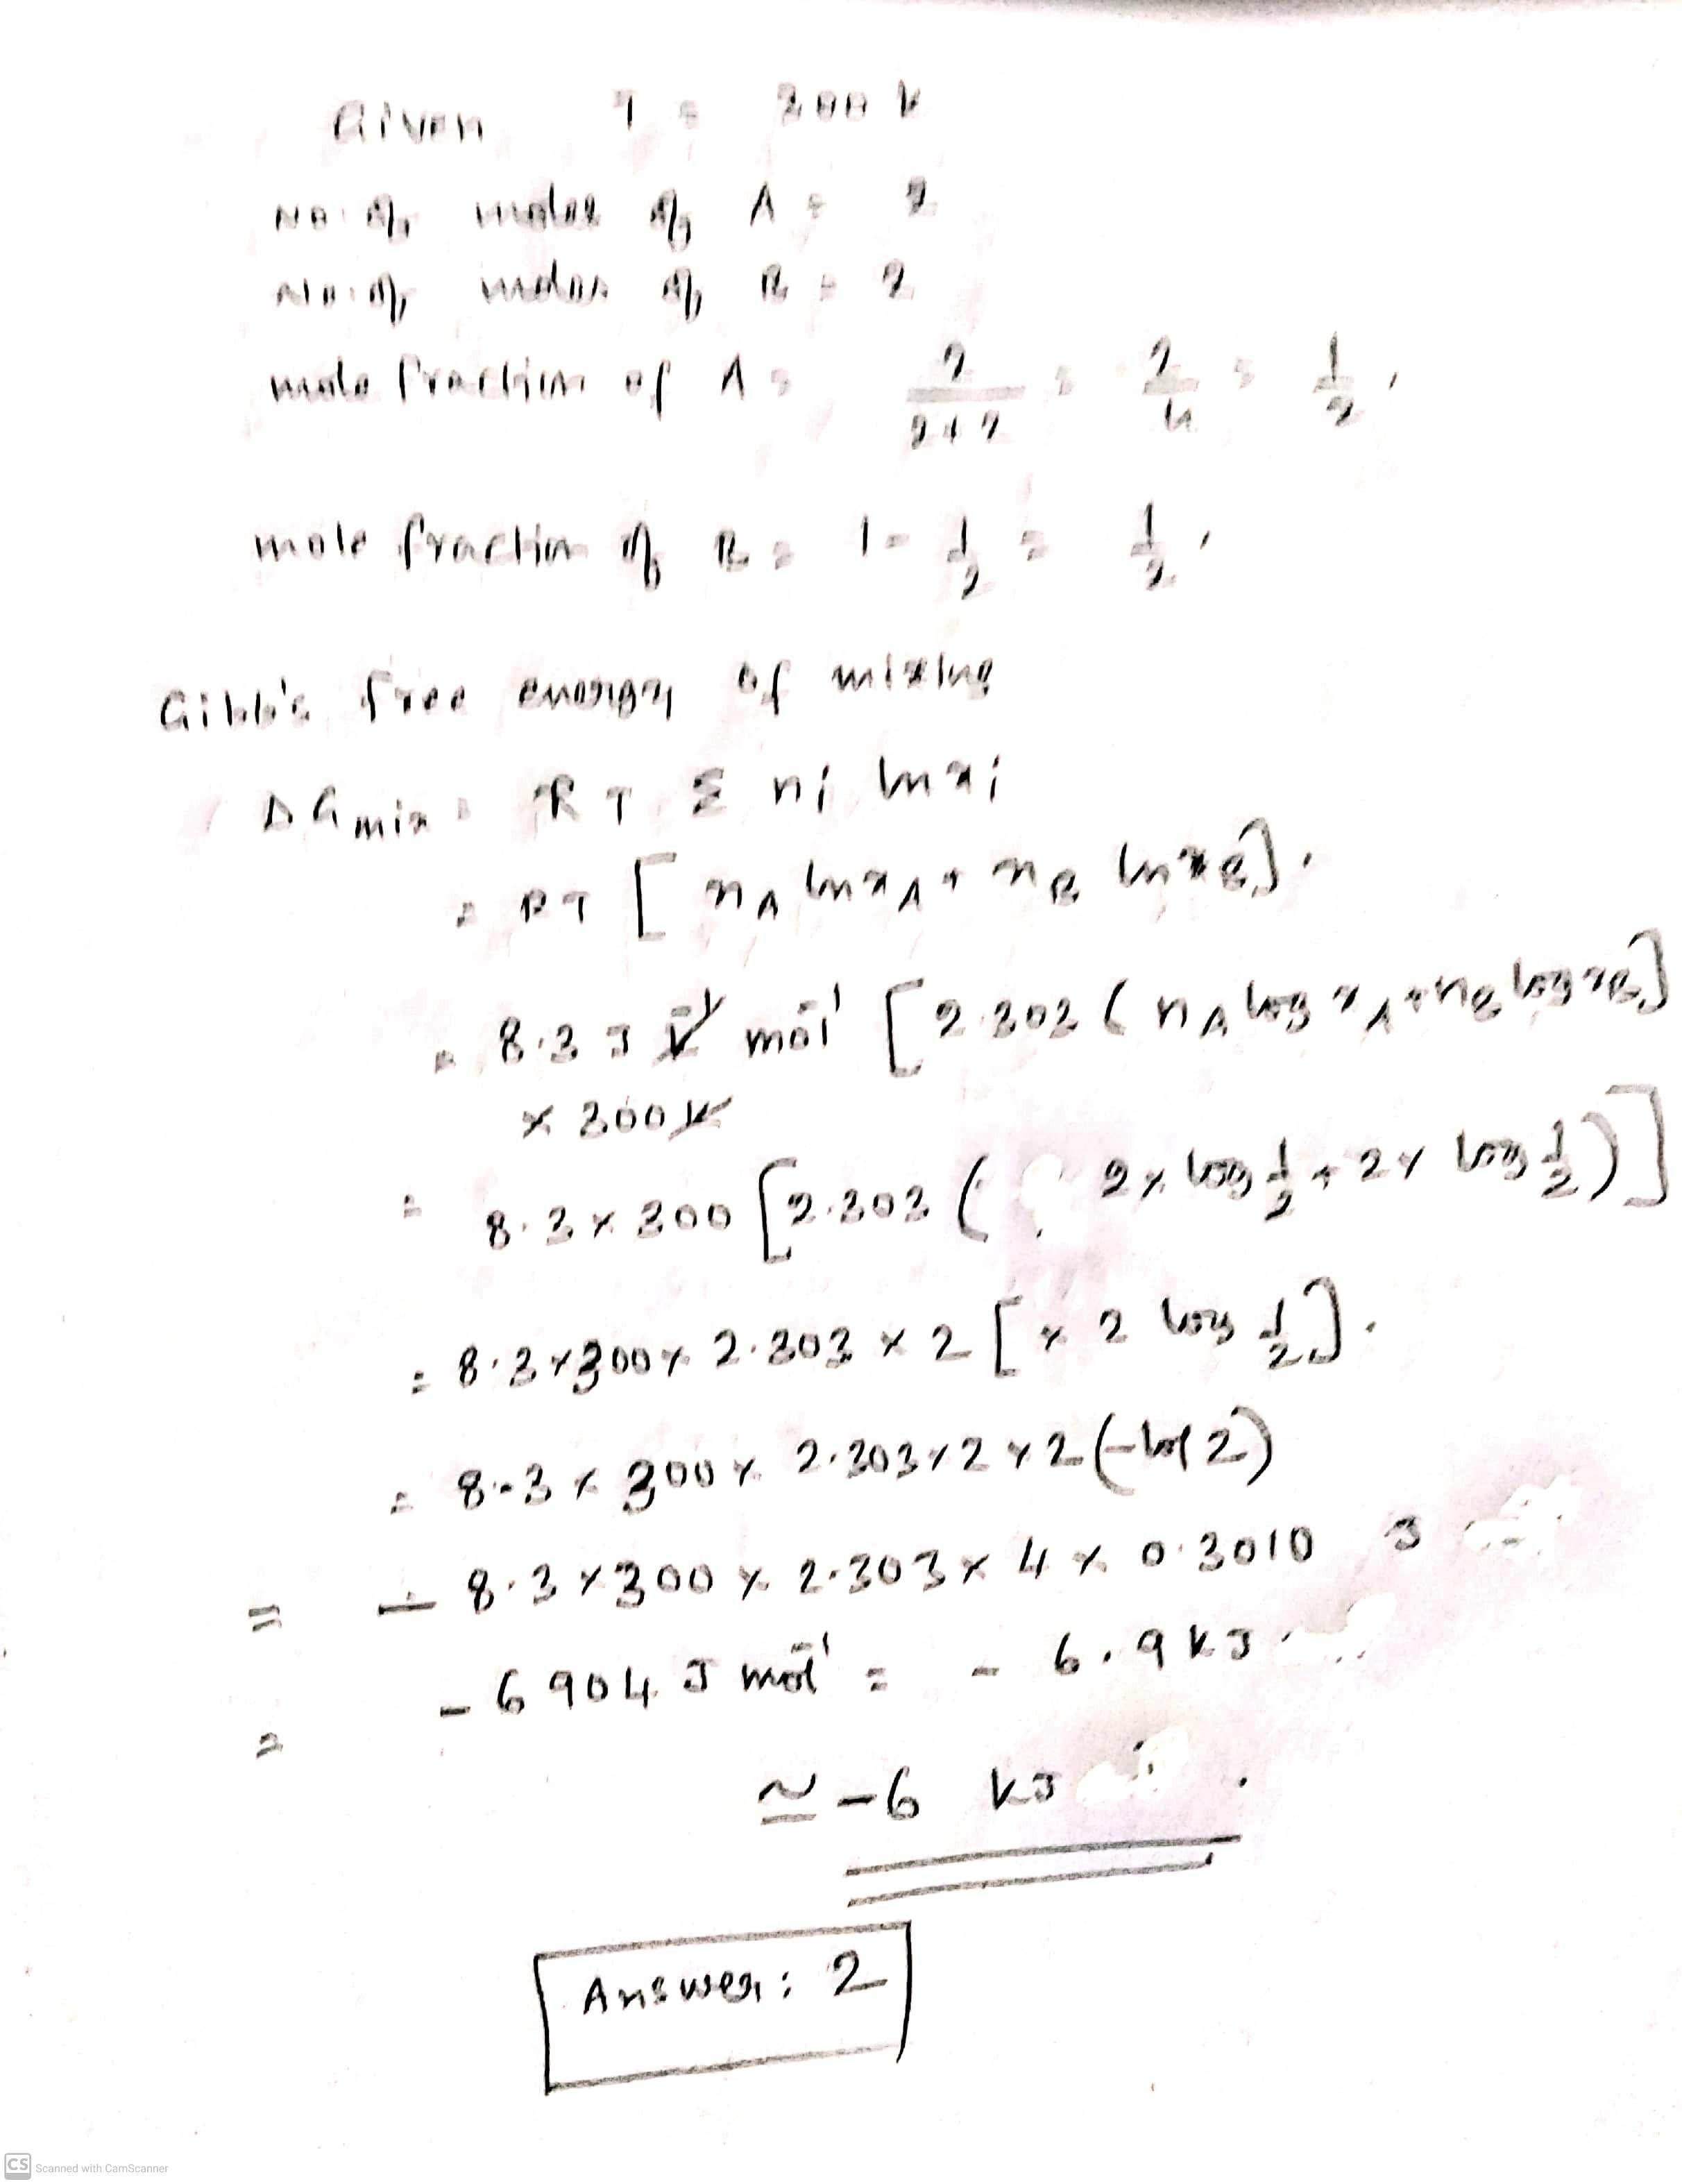 Given T = 300 K
No. of moles of A = 2
No. of moles of B = 2
mole fraction of A = 2/(2+2) = 2/4 = 1/2,
mole fraction of B = 1 - 1/2 = 1/2,
Gibb's free energy of mixing
ΔGmix = RT Σ ni ln xi
= RT [ nA ln xA + nB ln xB ].
= 8.3 J K⁻¹ mol⁻¹ [ 2.303 ( nA log xA + nB log xB ]
× 300 K
= 8.3 × 300 [ 2.303 ( 2 × log 1/2 + 2 × log 1/2 ) ]
= 8.3 × 300 × 2.303 × 2 [ × 2 log 1/2 ].
= 8.3 × 300 × 2.303 × 2 × 2 (- log 2)
= - 8.3 × 300 × 2.303 × 4 × 0.3010 J
= - 6904 J mol⁻¹ = - 6.9 kJ
≃ -6 kJ .
Answer : 2
CS Scanned with CamScanner